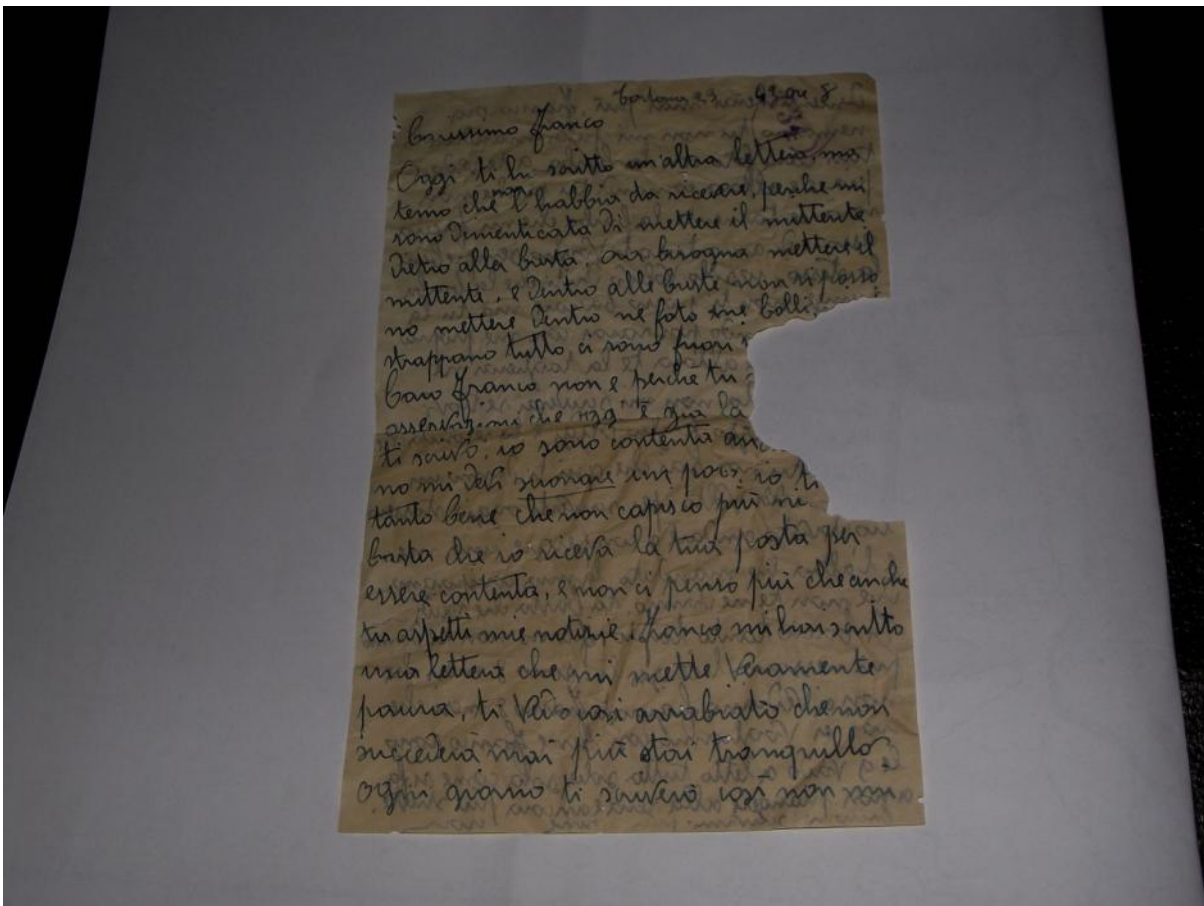 23 ore 8
Carissimo Franco
Oggi ti ho scritto un'altra lettera, ma
temo che non l'habbia da ricevere, perche mi
sono dimenticata di mettere il mittente
dietro alla busta ora bisogna mettere il
mittente, e dentro alle buste non si posso
no mettere dentro ne foto ne bolli
strappano tutto ci sono fuori
Caro Franco non e perche tu
che oggi è già la
ti scrivo, io sono contenta anc
no mi devi un poco io ti
tanto bene che non capisco più ni
basta che io riceva la tua posta per
essere contenta, e non ci penso più che anche
tu aspetti mie notizie. Franco mi hai scritto
una lettera che mi mette Veramente
paura, ti così arrabiato che non
succederà mai più stai tranquillo
ogni giorno ti scriverò così non